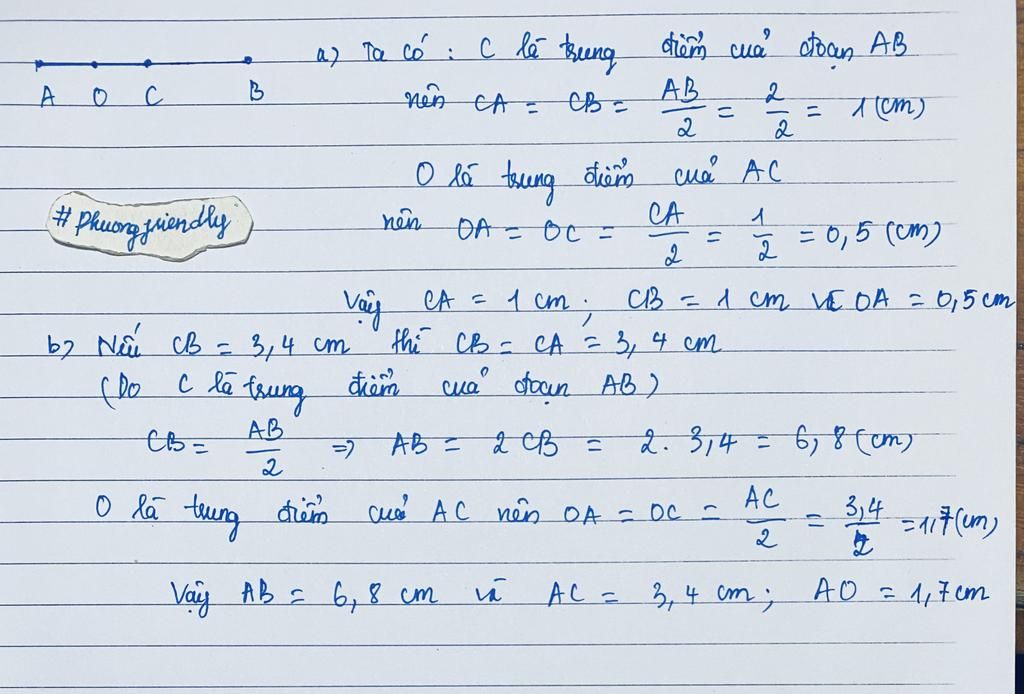 A O C B
a) Ta có : C là trung điểm cuả đoạn AB
nên CA = CB = AB/2 = 2/2 = 1 (cm)
O là trung điểm cuả AC
#Phuongfriendly
nên OA = OC = CA/2 = 1/2 = 0,5 (cm)
Vậy CA = 1 cm ; CB = 1 cm và OA = 0,5 cm
b) Nếu CB = 3,4 cm thì CB = CA = 3,4 cm
(Do C là trung điểm cuả đoạn AB)
CB = AB/2 => AB = 2 CB = 2. 3,4 = 6,8 (cm)
O là trung điểm cuả AC nên OA = OC = AC/2 = 3,4/2 = 1,7 (cm)
Vậy AB = 6,8 cm và AC = 3,4 cm ; AO = 1,7 cm